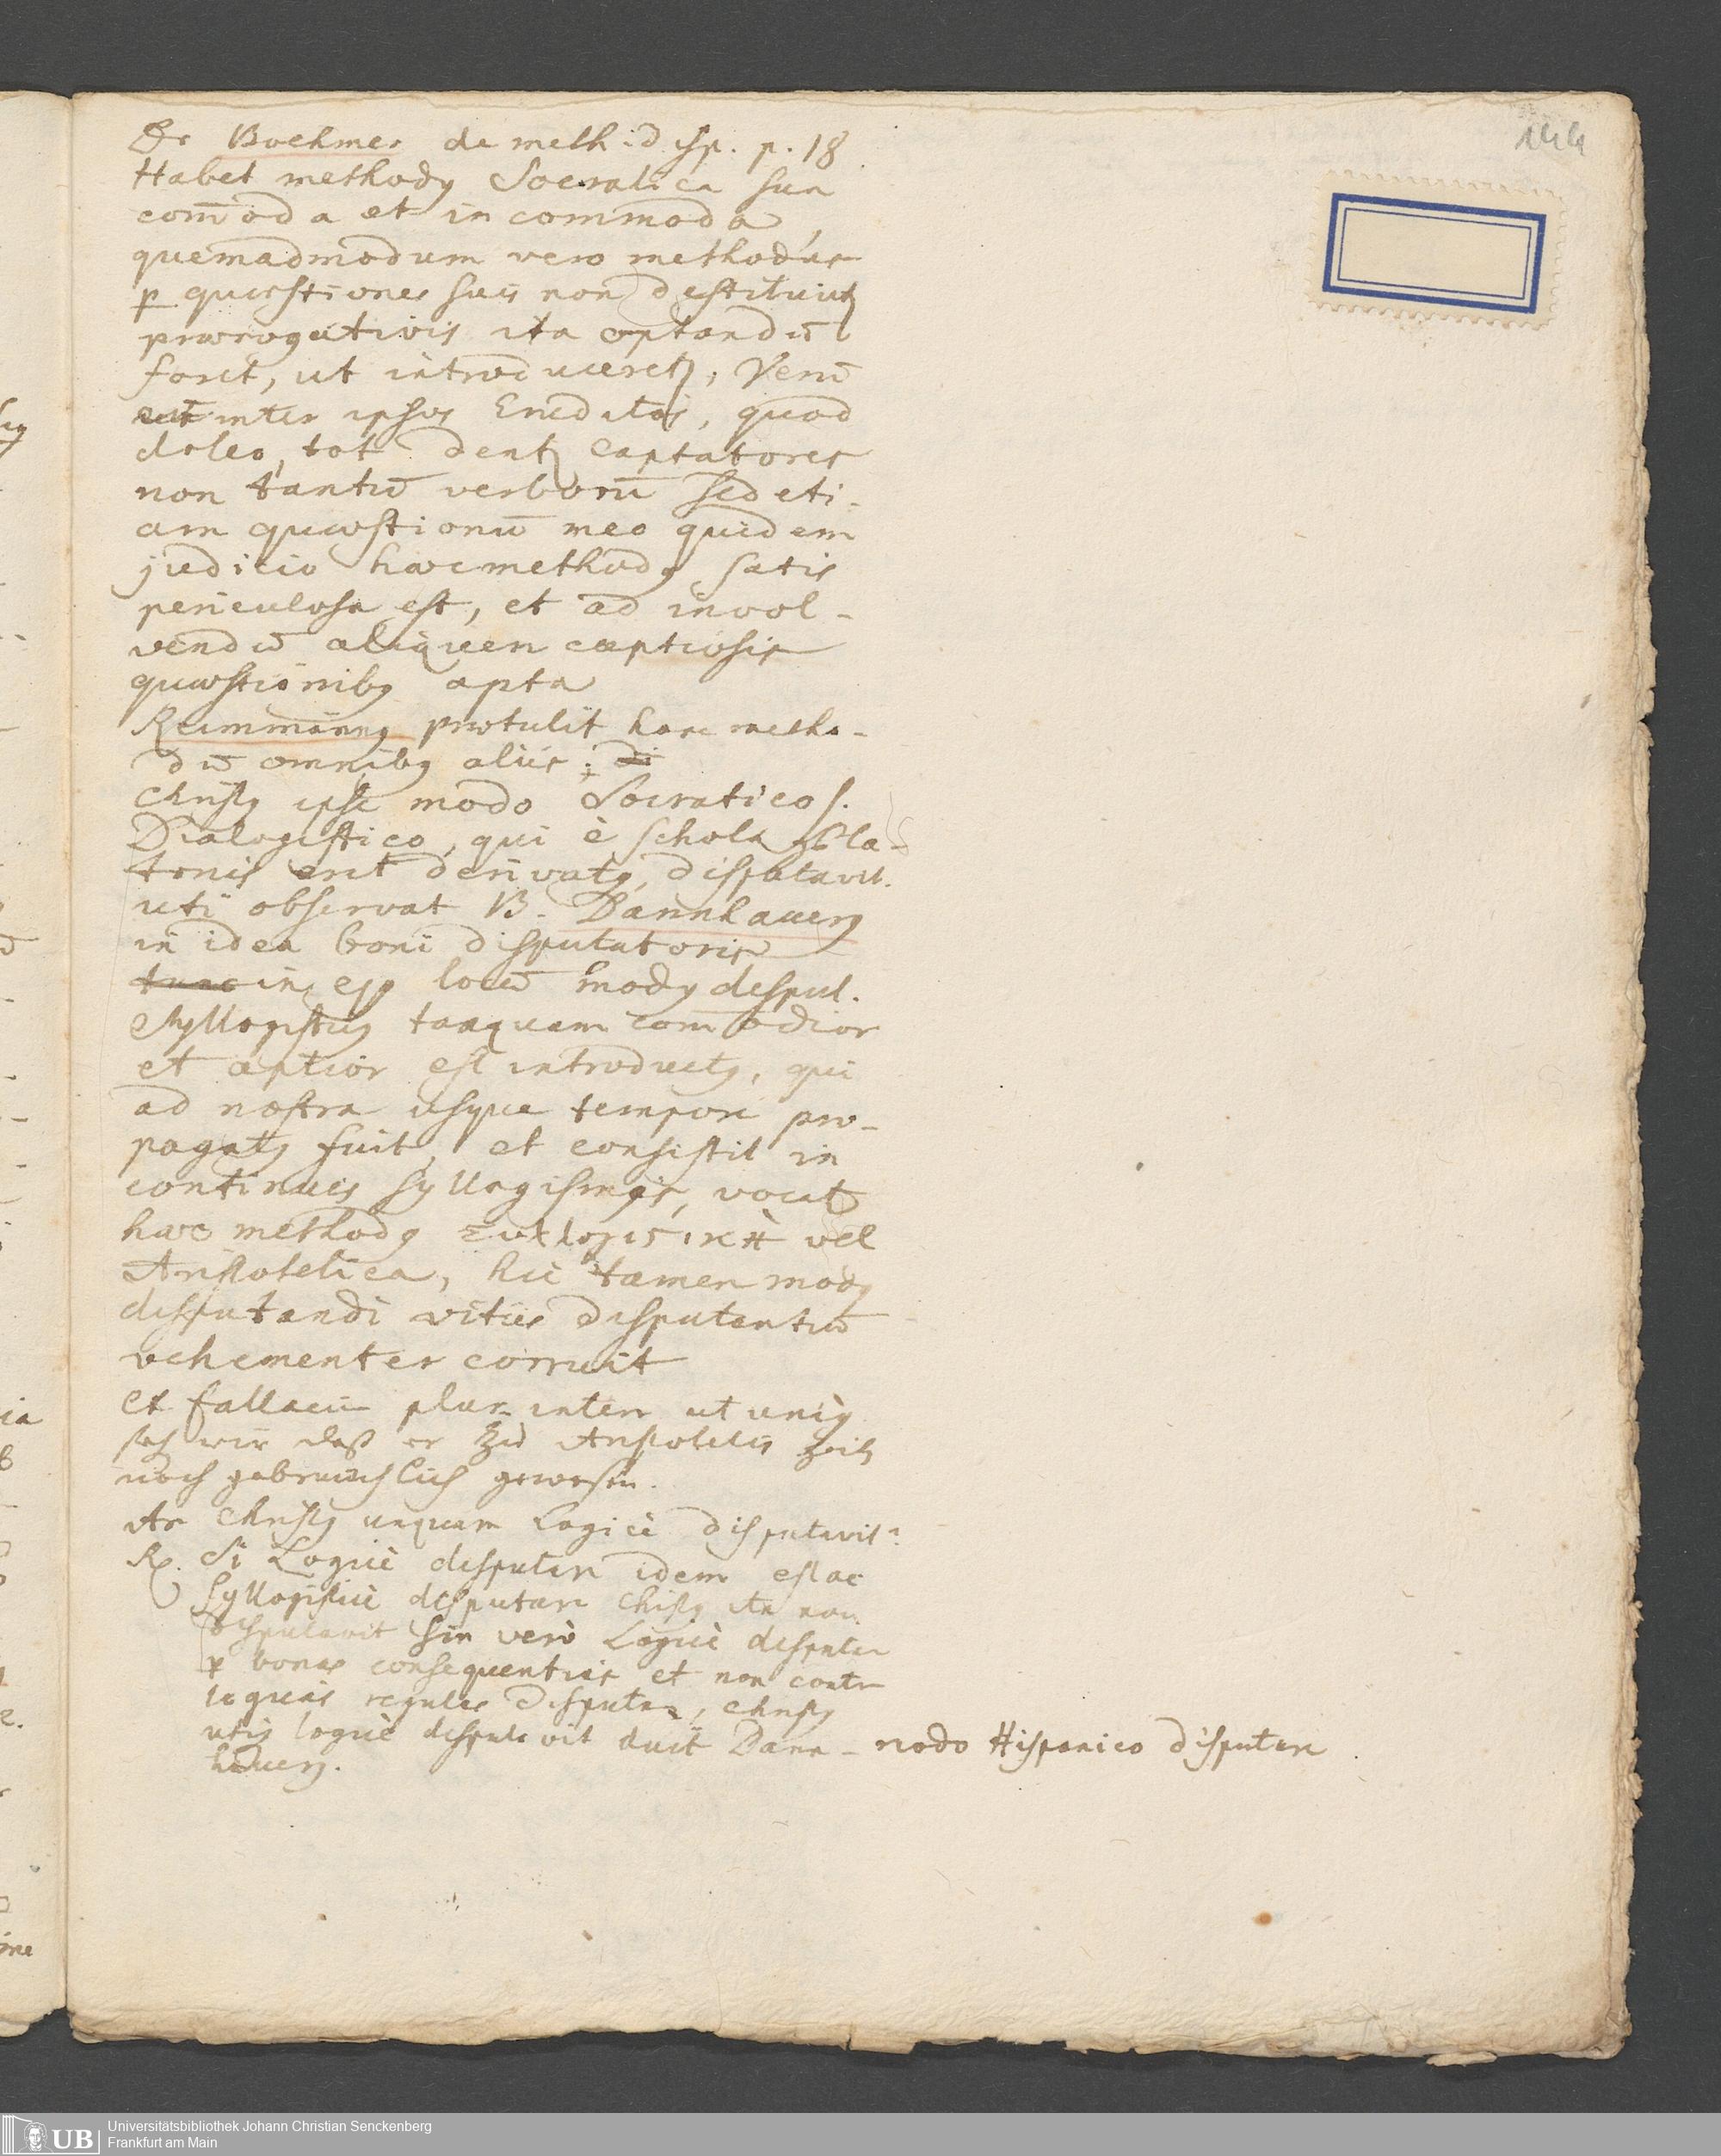 144
Dr Boehmer de meth: disp. p. 18
Habet methodꝰ Socratica sua
com̄oda et incommoda,
quemadmodum vero methodus
p quæstiones suis non destituitꝛ
prærogativis ita optandū
foret, ut introduceretꝛ, Verū
cum inter ipsos Eruditos, quod
doleo, tot dentꝛ captatores
non tantū verborū sed eti-
am quæstionū meo quidem
judicio hæc methodꝰ satis
periculosa est, et ad invol-
vendū aliquem captiosis
quæstionibꝰ apta
Reimmannꝰ prætulit hanc metho-
dū omnibꝰ aliis;
Christꝰ ipse modo Socratico s.
Dialogistico, qui è schola Pla-
tonis erat derivatꝰ, disputavit.
uti observat B. Dannhauerꝰ
in idea boni disputatoris
tunc in ejꝰ locū modꝰ disput.
Syllogisticꝰ tanquam com̄odior
et aptior est introductꝰ, qui
ad nostra usque tempora pro-
pagatꝰ fuit, et consistit in
continuis syllogismis, vocatꝛ
hæc methodꝰ Συλλογιςικὴ vel
Aristotelica, hic tamen modꝰ
disputandi vitiis disputantiū
vehementer corruit
et fallaciis
daß er zu Aristotelis Zeit
noch gebräuchlich gewesen.
An Christꝰ unquam Logicè disputavit?
R. Si Logicè disputare idem est ac
Syllogisticè disputare Christꝰ non
disputavit sin verò Logicè disputare
p bonas consequentias et non contra
logicas regulas disputare, Christꝰ
utiq logicè disputavit Dann-
hauerꝰ.
modo Hispanico disputare
Universitätsbibliothek Johann Christian Senckenberg
Frankfurt am Main
UB